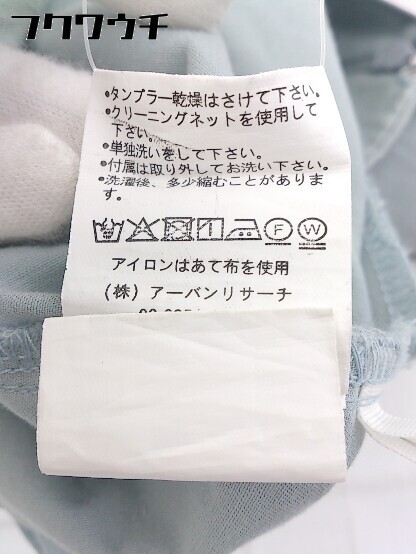 フクワウチ
•タンブラー乾燥はさけて下さい。
•クリーニングネットを使用して
下さい。
•単独洗いをして下さい。
•付属は取り外してお洗い下さい。
•洗濯後、多少縮むことがありま
す。
F W
アイロンはあて布を使用
(株) アーバンリサーチ